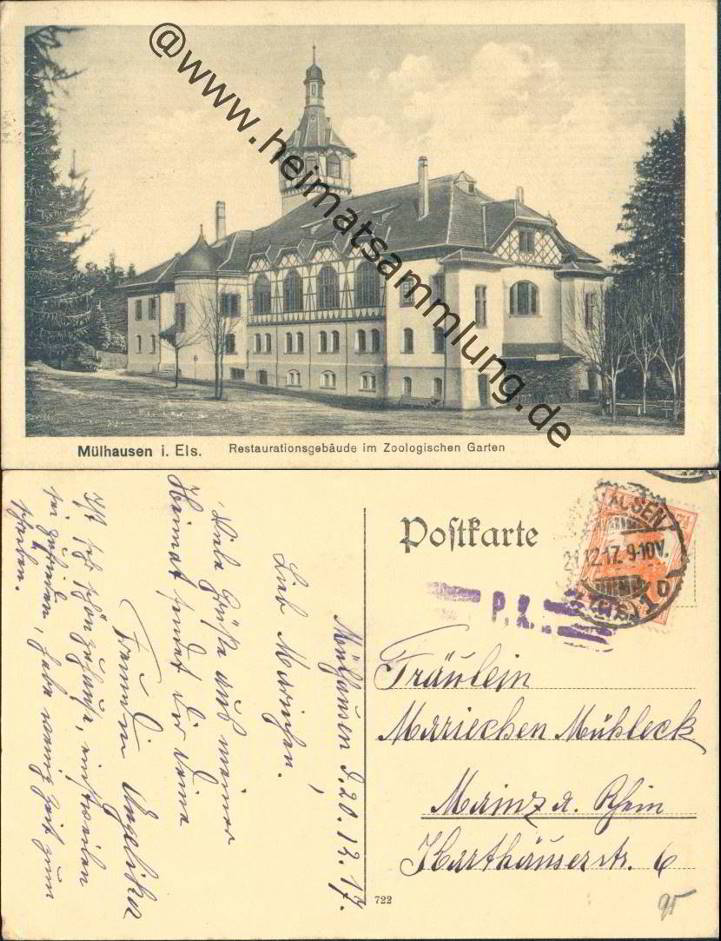 @www.heimatsammlung.de
Mülhausen i. Els. Restaurationsgebäude im Zoologischen Garten
Postkarte
AUSEN
21.12.17. 9-10V.
P. K.
Mülhausen d. 20.12.17.
Lieb Mariechen!
Viele Grüße aus meiner
Heimat sendet Dir Deine
Freundin
Ist sehr schön zuhause, einstweilen
sei zufrieden, habe wenig Zeit zum
schreiben.
Fräulein
Mariechen Mühleck
Mainz a. Rhein
Karthäuserstr. 6
722
95